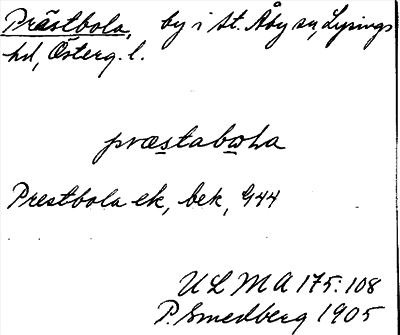 Prästbola, by i St. Åby sn, Lysings
hd, Österg. l.
Prestbola ek, bek, G44
ULMA 175:108
P. Smedberg 1905